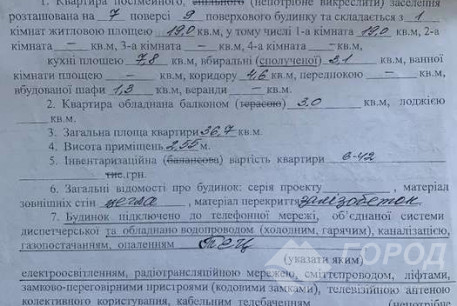 1. Квартира посімейного, спільного (непотрібне викреслити) заселення
розташована на 7 поверсі 9 поверхового будинку та складається з 1
кімнат житловою площею 19,0 кв.м, у тому числі 1-а кімната 19,0 кв.м, 2-а
кімната — кв.м, 3-а кімната — кв.м, 4-а кімната — кв.м,
кухні площею 7,8 кв.м, вбиральні (сполученої) 3,1 кв.м, ванної
кімнати площею — кв.м, коридору 4,6 кв.м, передпокою — кв.м,
вбудованої шафи 1,3 кв.м, веранди — кв.м.
2. Квартира обладнана балконом (терасою) 3,0 кв.м, лоджією
кв.м.
3. Загальна площа квартири 36,7 кв.м.
4. Висота приміщень 2,55 м.
5. Інвентаризаційна (балансова) вартість квартири 6-42
тис.грн.
6. Загальні відомості про будинок: серія проекту , матеріал
зовнішніх стін цегла , матеріал перекриття залізобетон
7. Будинок підключено до телефонної мережі, об'єднаної системи
диспетчерської та обладнано водопроводом (холодним, гарячим), каналізацією,
газопостачанням, опаленням ТЕЦ
ГОРОД
(указати яким)
електроосвітленням, радіотрансляційною мережею, сміттєпроводом, ліфтами,
замково-переговорними пристроями (кодовими замками), телевізійною антеною
колективного користування, кабельним телебаченням (непотрібне